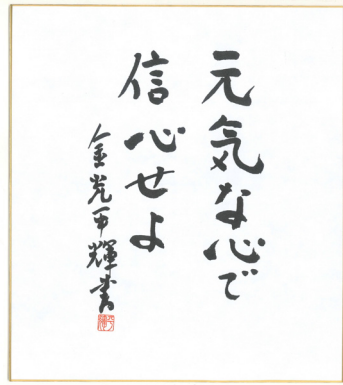 元気な心で
信心せよ
金光平輝書